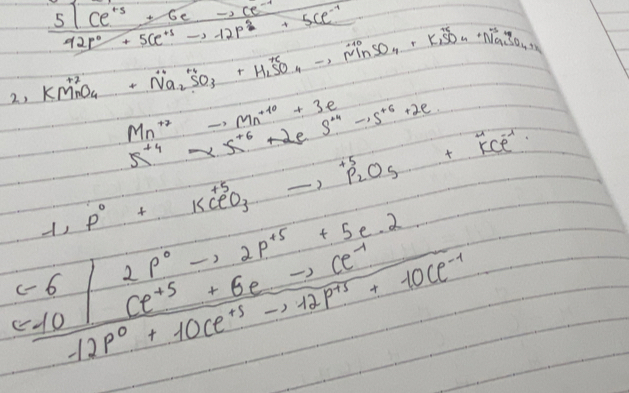 5 | Ce⁺⁵ + 6e → Ce⁻¹
12P⁰ + 5Ce⁺⁵ → 12P + 5Ce⁻¹
2, KMnO₄ + Na₂SO₃ + H₂SO₄ → MnSO₄ + K₂SO₄ +
Mn⁺⁷ → Mn⁺¹⁰ + 3e
S⁺⁴ → S⁺⁶ + 2e S⁺⁴ → S⁺⁶ + 2e
1, P⁰ + KCeO₃ → P₂O₅ + KCe
6 | 2P⁰ → 2P⁺⁵ + 5e.2
10 | Ce⁺⁵ + 6e → Ce⁻¹
12P⁰ + 10Ce⁺⁵ → 12P⁺⁵ + 10Ce⁻¹